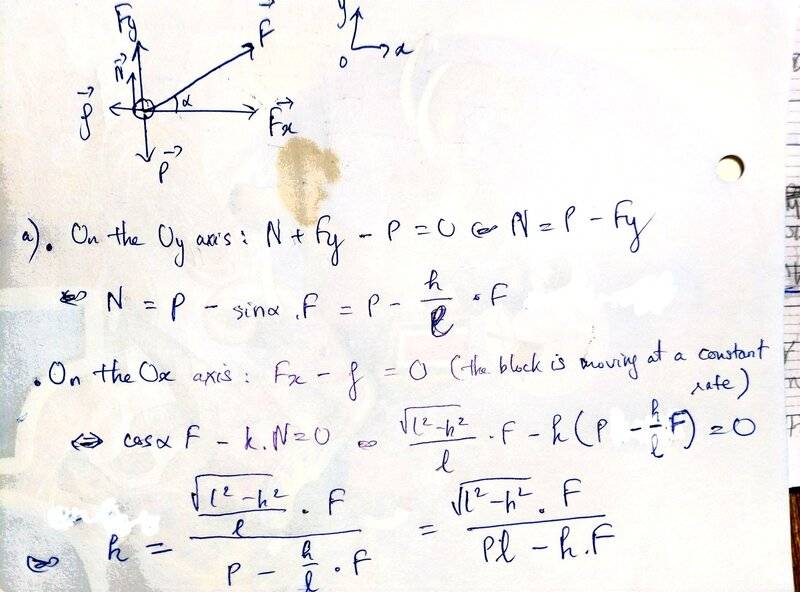 Fy
F
N
α
f
Fx
P
y
o
x
a). On the Oy axis: N + Fy - P = 0 ⇔ N = P - Fy
⇔ N = P - sinα . F = P - h/l . F
. On the Ox axis: Fx - f = 0 (the block is moving at a constant
rate)
⇔ cosα F - k.N = 0 ⇔ √(l²-h²)/l . F - k(P - h/l F) = 0
⇔ k = (√(l²-h²)/l . F)/(P - h/l . F) = (√(l²-h²) . F)/(Pl - h.F)